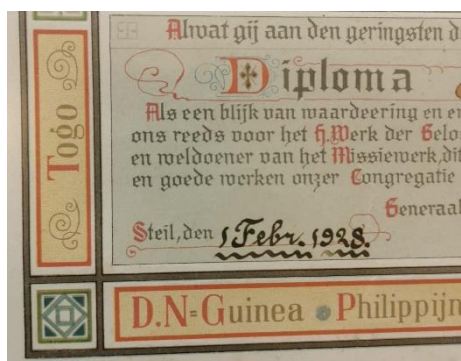 Alwat gij aan den geringsten d
Diploma
Als een blijk van waardeering en er
ons reeds voor het H. Werk der Gelo
en weldoener van het Missiewerk, dit
en goede werken onzer Congregatie
Generaal
Steil, den 1 Febr. 1928.
Togo
D.N=Guinea Philippijn